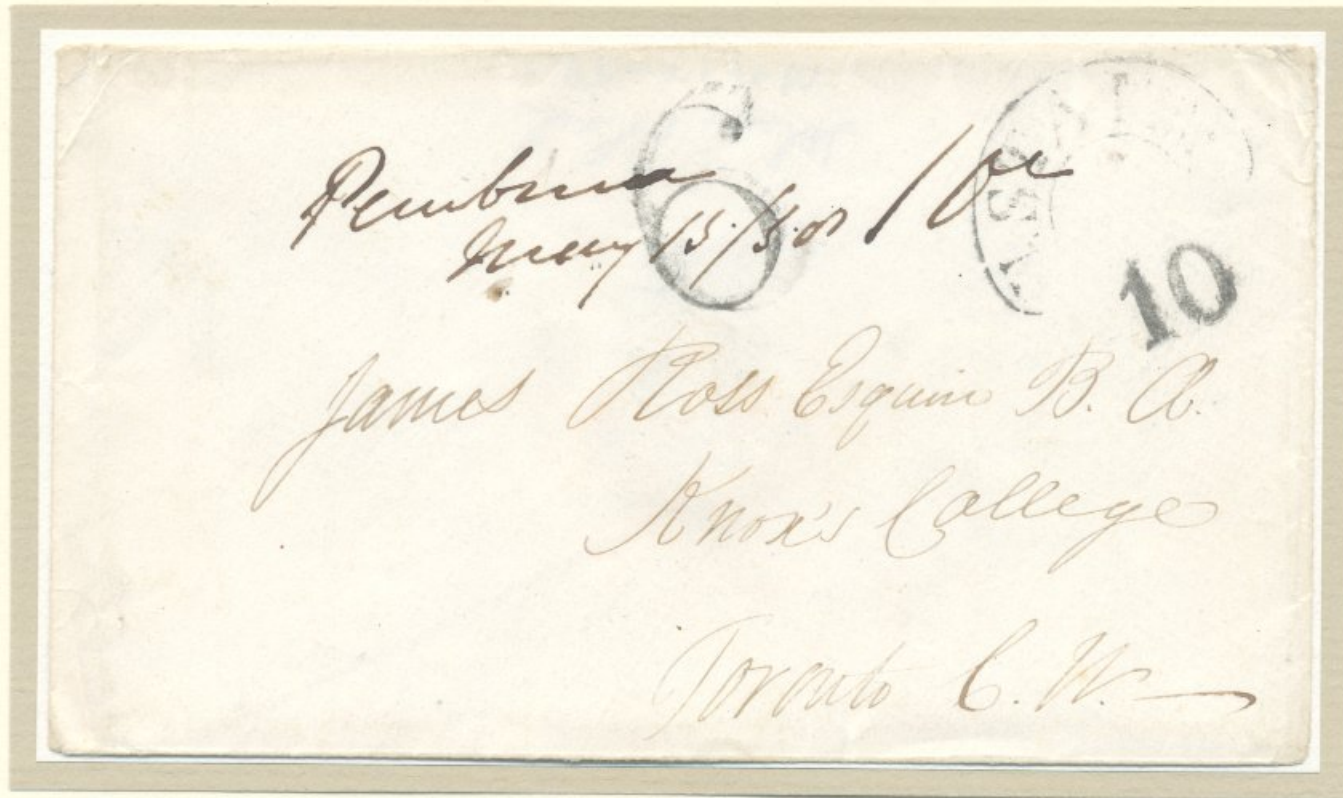 Pembina
May 15/58
10
6
10
James Ross Esquire B. A.
Knox's College
Toronto C. W.